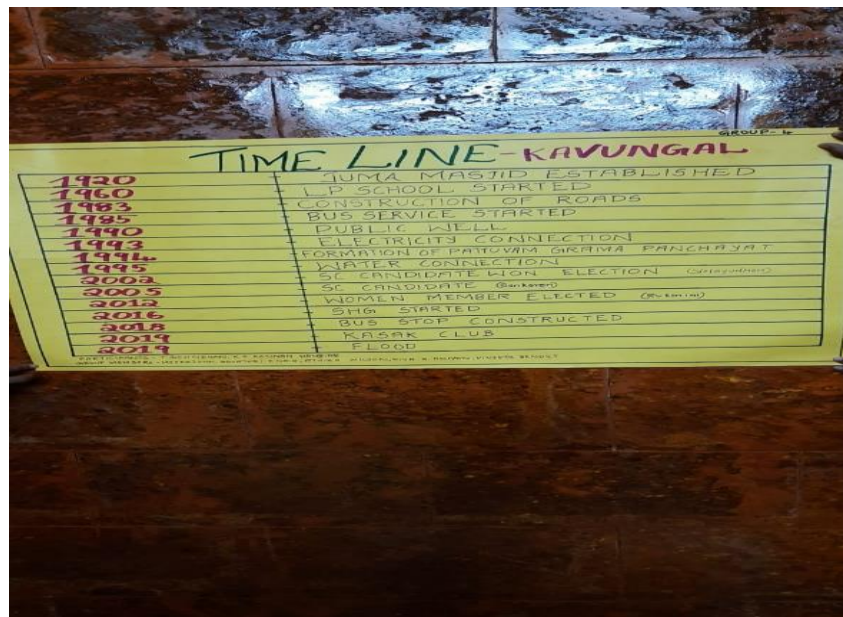 GROUP-4
TIME LINE-KAVUNGAL
1920 JUMA MASJID ESTABLISHED
1960 LP SCHOOL STARTED
1983 CONSTRUCTION OF ROADS
1985 BUS SERVICE STARTED
1990 PUBLIC WELL
1993 ELECTRICITY CONNECTION
1994 FORMATION OF PATTUVAM GRAMA PANCHAYAT
1995 WATER CONNECTION
2002 SC CANDIDATE WON ELECTION
2005 SC CANDIDATE
2012 WOMEN MEMBER ELECTED (Rukmini)
2016 SHG STARTED
2018 BUS STOP CONSTRUCTED
2019 KASAK CLUB
2019 FLOOD
PARTICIPANTS
GROUP MEMBERS